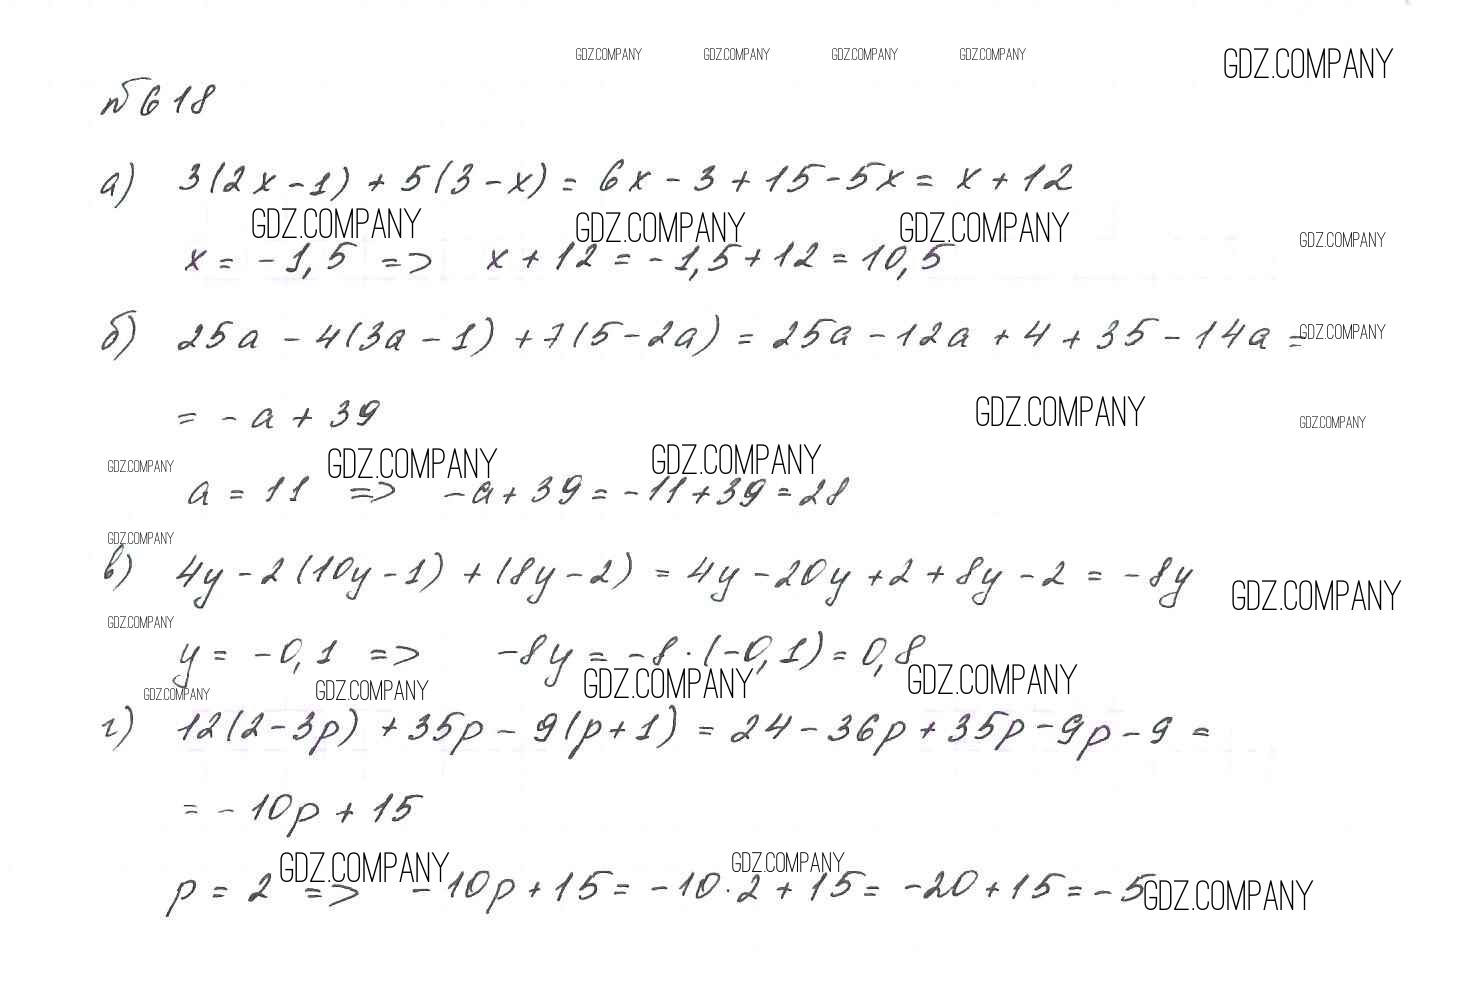 GDZ.COMPANY GDZ.COMPANY GDZ.COMPANY GDZ.COMPANY GDZ.COMPANY
№618
а) 3(2x-1)+5(3-x)=6x-3+15-5x=x+12
GDZ.COMPANY GDZ.COMPANY GDZ.COMPANY GDZ.COMPANY
x=-1,5 => x+12=-1,5+12=10,5
б) 25a-4(3a-1)+7(5-2a)=25a-12a+4+35-14a=
GDZ.COMPANY
=-a+39
GDZ.COMPANY GDZ.COMPANY
GDZ.COMPANY GDZ.COMPANY GDZ.COMPANY
a=11 => -a+39=-11+39=28
GDZ.COMPANY
в) 4y-2(10y-1)+(8y-2)=4y-20y+2+8y-2=-8y
GDZ.COMPANY
GDZ.COMPANY
y=-0,1 => -8y=-8·(-0,1)=0,8
GDZ.COMPANY GDZ.COMPANY GDZ.COMPANY GDZ.COMPANY
г) 12(2-3p)+35p-9(p+1)=24-36p+35p-9p-9=
=-10p+15
GDZ.COMPANY GDZ.COMPANY
p=2 => -10p+15=-10·2+15=-20+15=-5
GDZ.COMPANY